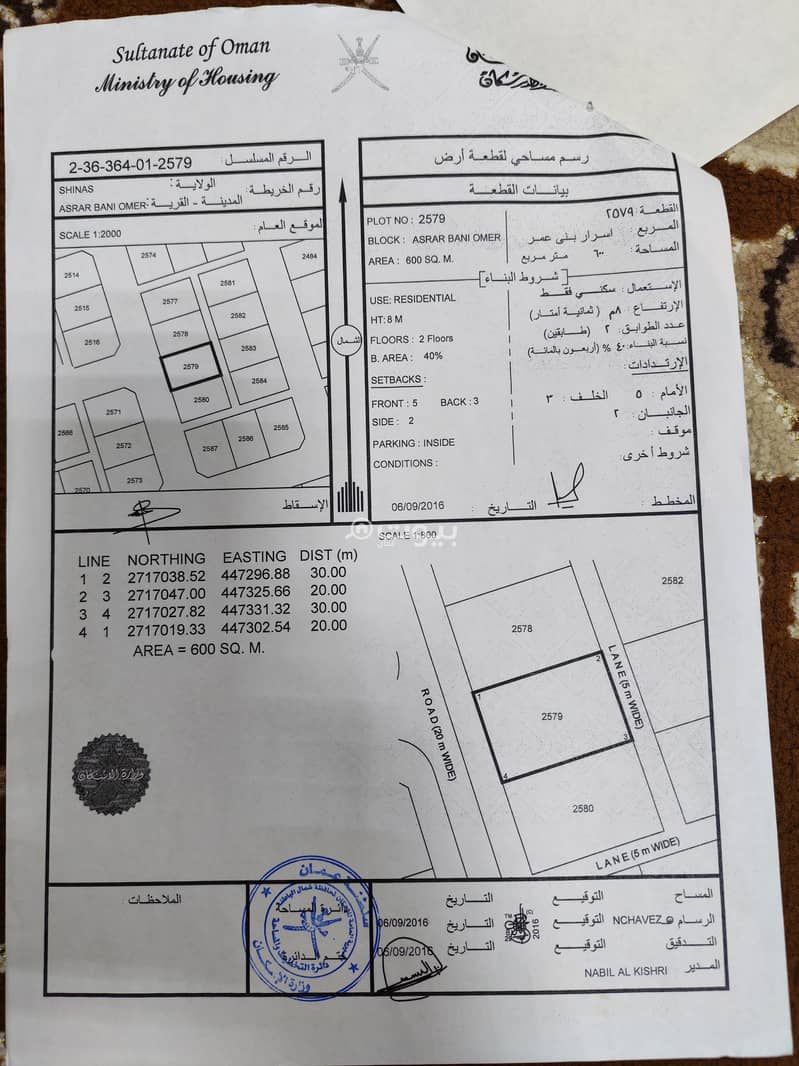 Sultanate of Oman
Ministry of Housing
الرقم المسلسل : 2-36-364-01-2579
رقم الخريطة: الولاية : SHINAS
المدينة - القرية : ASRAR BANI OMER
الموقع العام : SCALE 1:2000
2514
2574
2581
2484
2515
2577
2582
2516
2578
2583
2579
2584
2580
2571
2588
2572
2587
2586
2585
2570
2573
الإسقاط
الشمال
رسم مساحي لقطعة أرض
بيانات القطعة
PLOT NO : 2579
القطعة : ٢٥٧٩
BLOCK : ASRAR BANI OMER
المربع : اسرار بنى عمر
AREA : 600 SQ. M.
المساحة : ٦٠٠ متر مربع
[شروط البناء]
USE: RESIDENTIAL
الإستعمال : سكني فقط
HT: 8 M
الإرتفاع : ٨م ( ثمانية أمتار)
FLOORS : 2 Floors
عدد الطوابق : ٢ (طابقين)
B. AREA : 40%
نسبة البناء : ٤٠ % (أربعون بالمائة)
SETBACKS :
الإرتدادات:
FRONT : 5 BACK : 3
الأمام : ٥ الخلف : ٣
SIDE : 2
الجانبان : ٢
PARKING : INSIDE
موقف :
CONDITIONS :
شروط أخرى:
06/09/2016 التاريخ : المخطط :
بيوت
SCALE 1:800
LINE NORTHING EASTING DIST (m)
1 2 2717038.52 447296.88 30.00
2 3 2717047.00 447325.66 20.00
3 4 2717027.82 447331.32 30.00
4 1 2717019.33 447302.54 20.00
AREA = 600 SQ. M.
2582
2578
LANE (5 m WIDE)
1
2
2579
3
4
ROAD (20 m WIDE)
2580
LANE (5 m WIDE)
وزارة الاسكان
الملاحظات
سلطنة عمان
دائرة المساحة
ختم الدائرة
دائرة التخطيط والمساحة
وزارة الإسكان
المساح التوقيع التاريخ
الرسام NCHAVEZ التوقيع 2016 التاريخ 06/09/2016
التدقيق التوقيع التاريخ 06/09/2016
المدير NABIL AL KISHRI